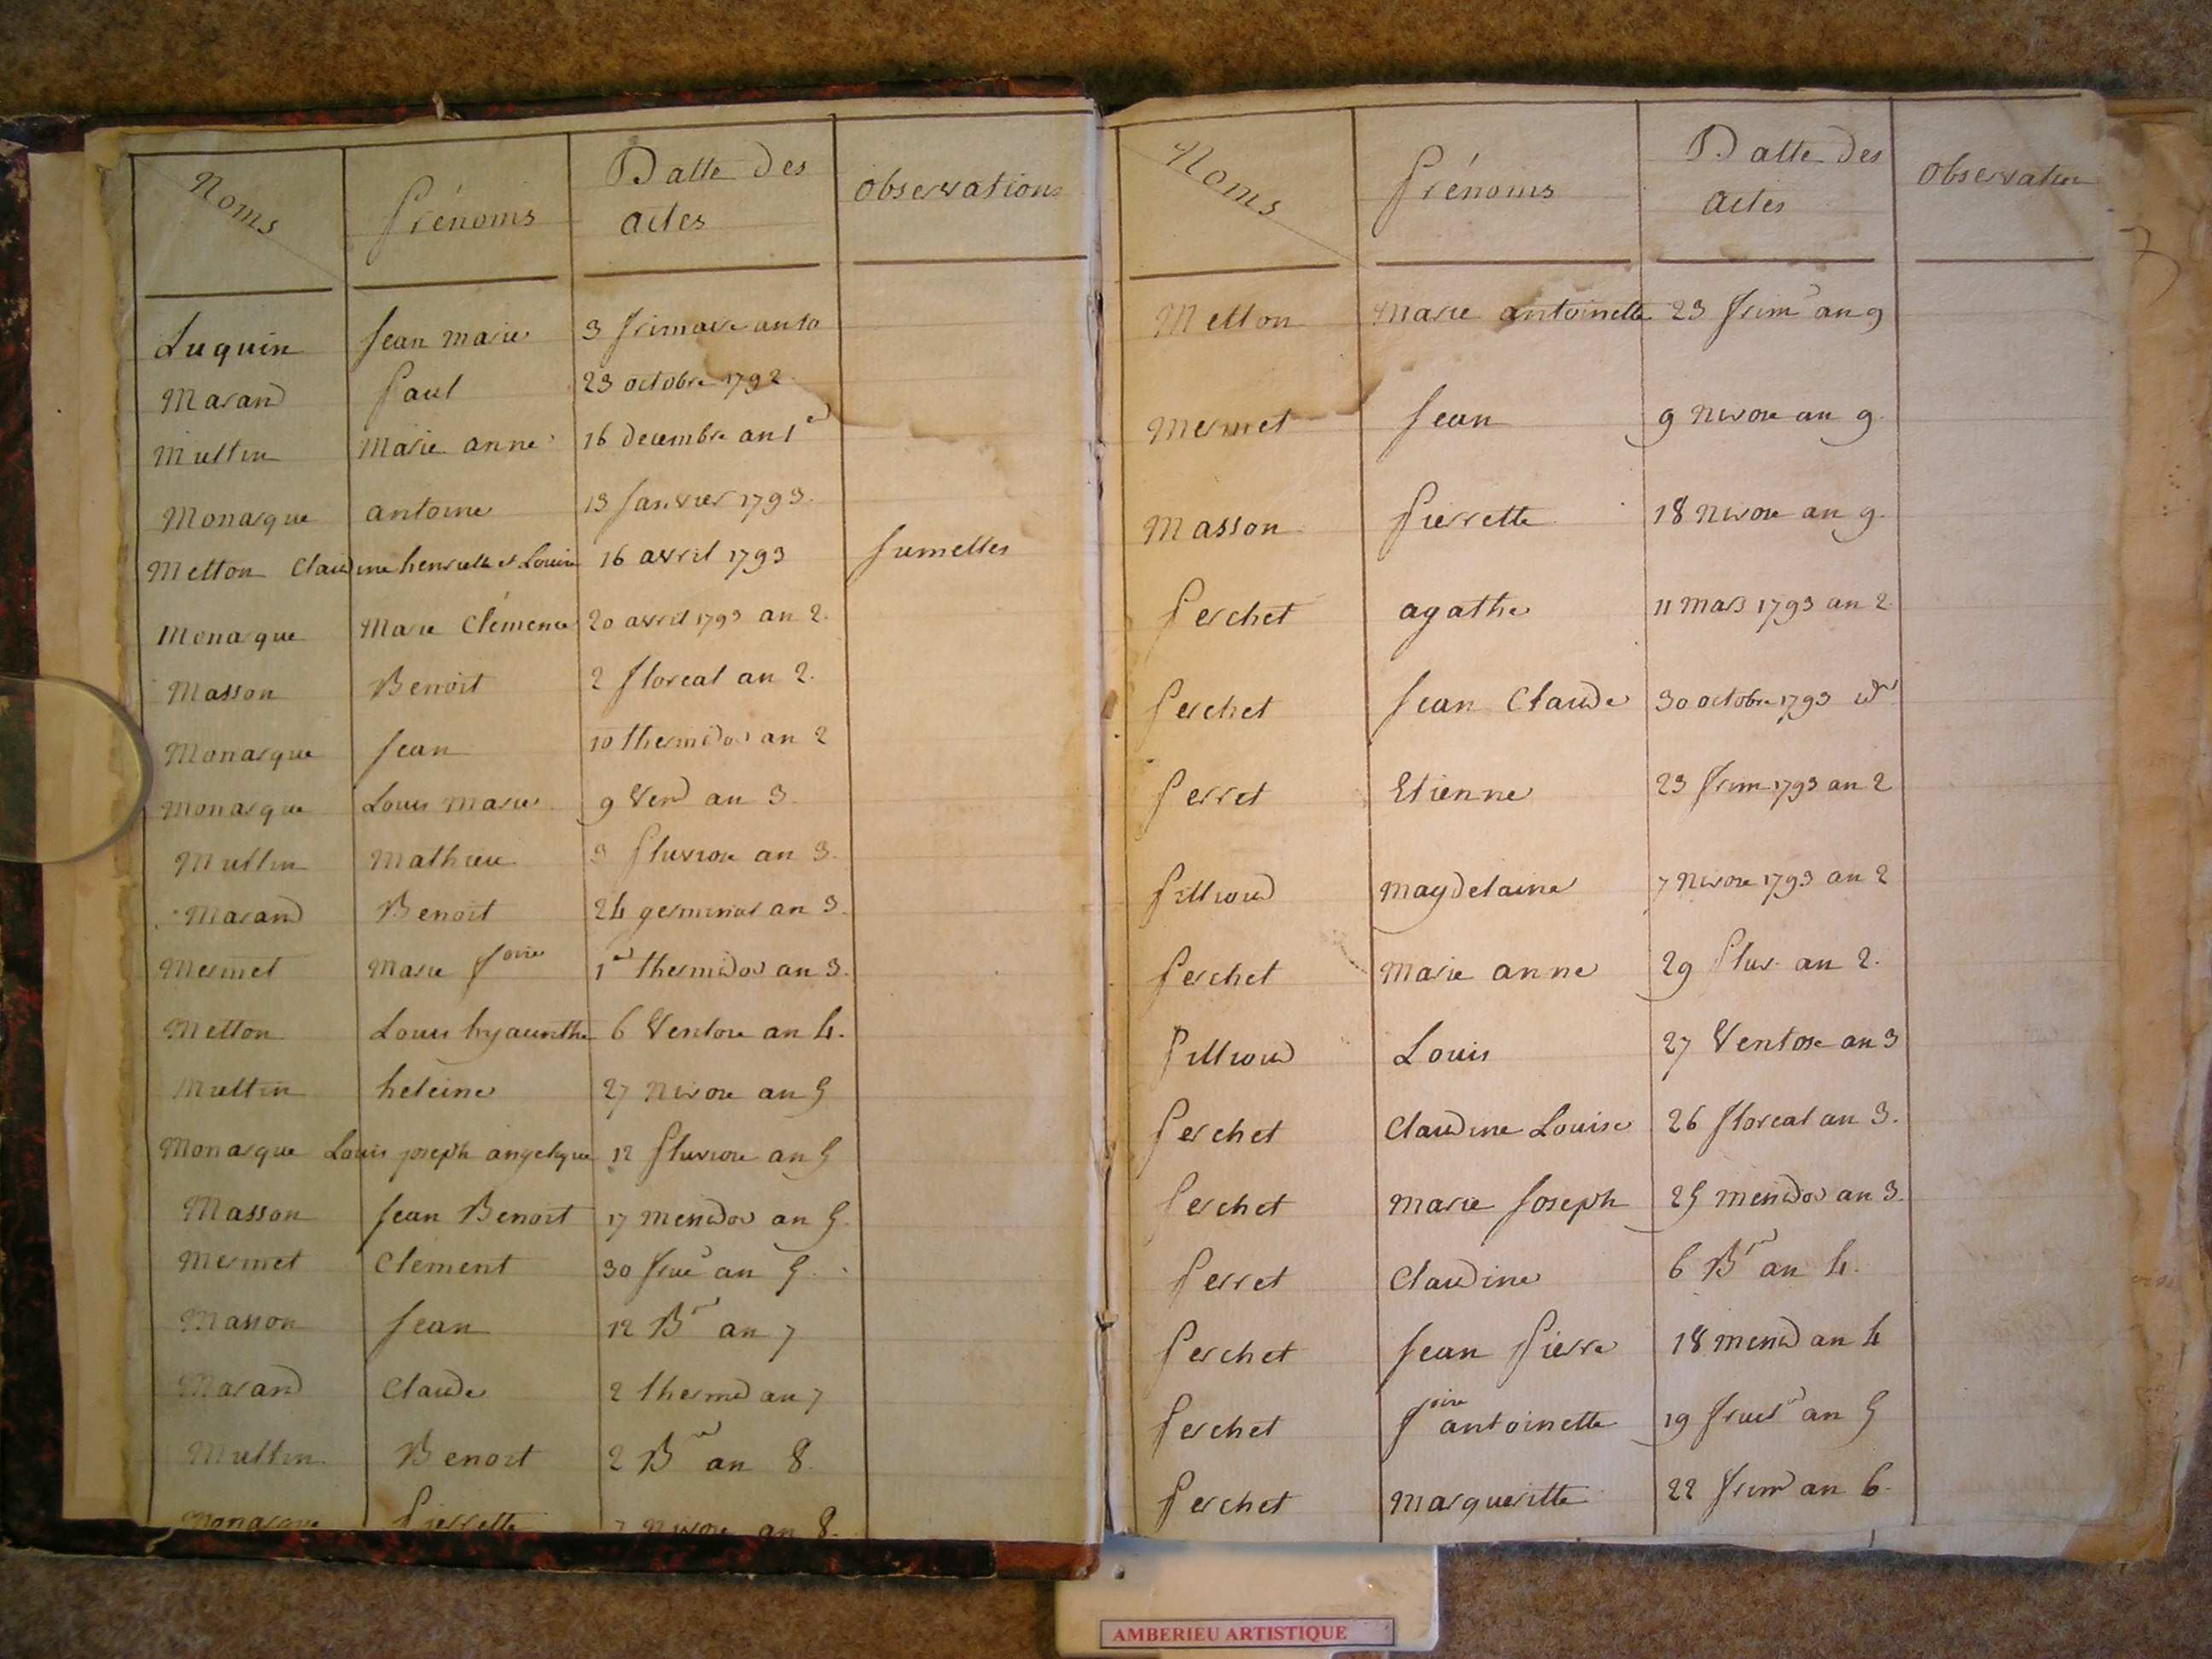 Noms Prénoms Datte Des actes Observations
Luquin Jean marie 3 frimaire an 10
Marand Paul 23 octobre 1792
Multin Marie anne 16 decembre an 1er
Monarque antoine 13 Janvier 1793.
Metton Claudine henriette et Louise 16 avril 1793 Jumelles
Monarque Marie Clémence 20 avril 1793 an 2.
Masson Benoit 2 floreal an 2.
Monarque Jean 10 thermidor an 2
Monarque Louis Marie 9 Vend an 3.
Multin Mathieu 3 Pluviose an 3.
Marand Benoit 24 germinal an 3.
Mermet Marie Joine 1er thermidor an 3.
Metton Louis hyacinthe 6 Ventose an 4.
Multin heleine 27 Nivose an 5
Monarque Louis joseph angelique 12 Pluviose an 5
Masson Jean Benoit 17 messidor an 5.
Mermet Clement 30 fruc an 5.
Masson Jean 12 Bre an 7
Marand Claude 2 thermid an 7
Multin Benoit 2 Bre an 8.
Monarque Pierrette 7 nivose an 8.
Noms Prénoms Datte Des actes Observation
Metton Marie antoinette 23 frim an 9
Mermet Jean 9 Nivose an 9.
Masson Pierrette 18 Nivose an 9.
Perchet agathe 11 mars 1793 an 2.
Perchet Jean Claude 30 octobre 1793
Perret Etienne 23 frim 1793 an 2
Pillioud Magdelaine 7 Nivose 1793 an 2
Perchet Marie anne 29 Pluv. an 2.
Pillioud Louis 27 Ventose an 3
Perchet Claudine Louise 26 floreal an 3.
Perchet Marie Joseph 25 messidor an 3.
Perret Claudine 6 Bre an 4.
Perchet Jean Pierre 18 messid an 4
Perchet Joine antoinette 19 fruct an 5
Perchet Margueritte 22 frim an 6.
AMBERIEU ARTISTIQUE